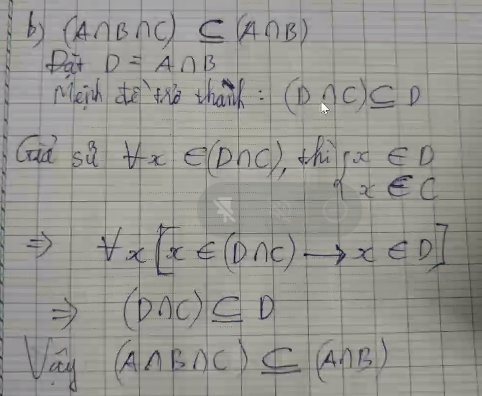 b) (A∩B∩C) ⊆ (A∩B)
Đặt D = A∩B
Mệnh đề trở thành : (D∩C) ⊆ D
Giả sử ∀x ∈ (D∩C), thì { x ∈ D
x ∈ C
=> ∀x [x ∈ (D∩C) → x ∈ D]
=> (D∩C) ⊆ D
Vậy (A∩B∩C) ⊆ (A∩B)